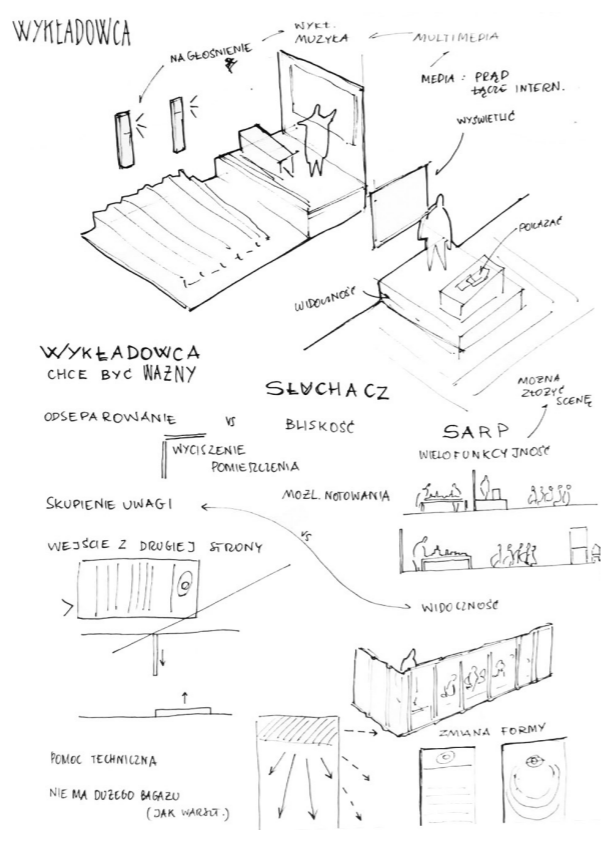 WYKŁADOWCA
NAGŁOŚNIENIE
WYKŁ.
MUZYKA
MULTIMEDIA
MEDIA : PRĄD
ŁĄCZE INTERN.
WYŚWIETLIĆ
POKAZAĆ
WIDOCZNOŚĆ
WYKŁADOWCA
CHCE BYĆ WAŻNY
SŁUCHACZ
MOŻNA
ZŁOŻYĆ
SCENĘ
ODSEPAROWANIE
VS
BLISKOŚĆ
SARP
WIELOFUNKCYJNOŚĆ
WYCISZENIE
POMIESZCZENIA
MOŻL. NOTOWANIA
SKUPIENIE UWAGI
VS
WEJŚCIE Z DRUGIEJ STRONY
WIDOCZNOŚĆ
ZMIANA FORMY
POMOC TECHNICZNA
NIE MA DUŻEGO BAGAŻU
(JAK WARSZT.)